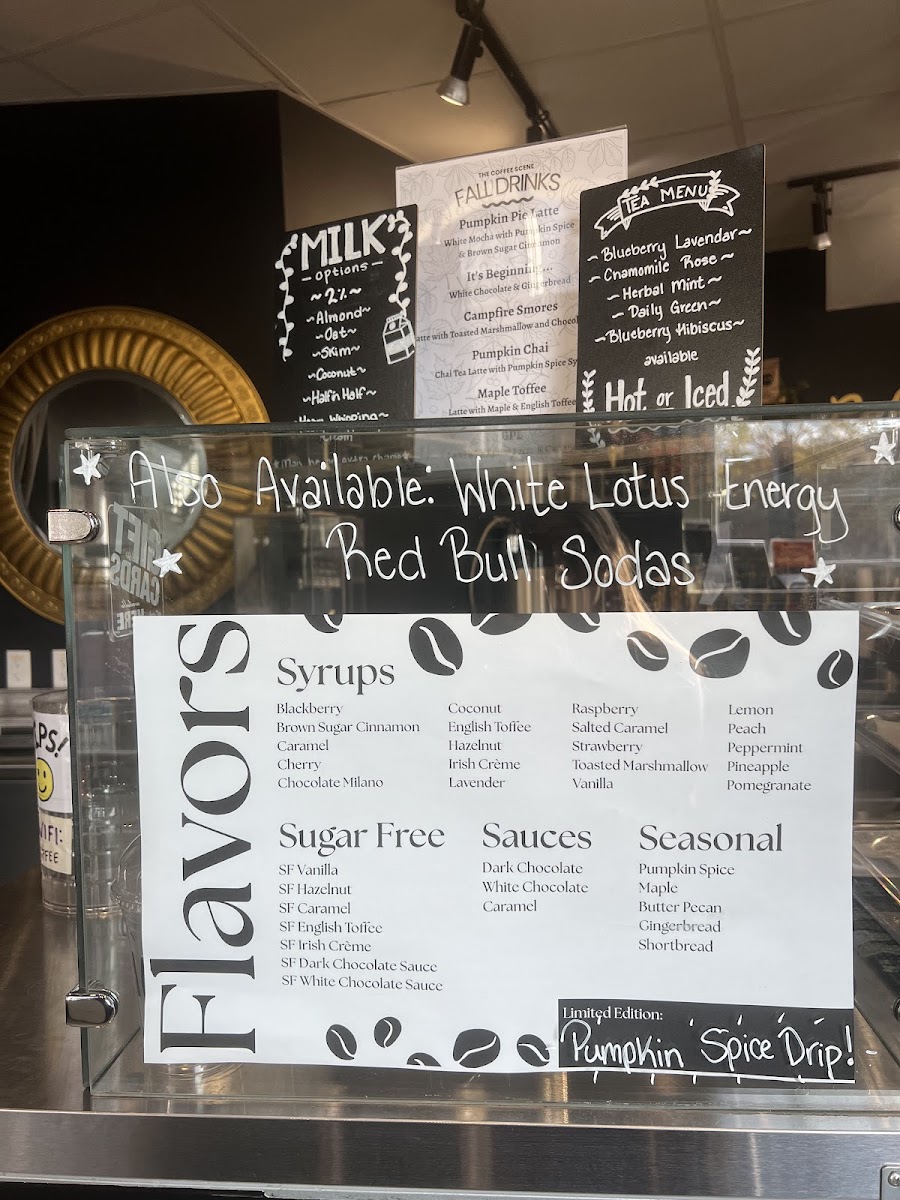 MILK
- options -
~ 2% ~
~Almond~
~Oat~
~Skim~
~Coconut~
~Half n Half~
Whipping~
Cream
THE COFFEE SCENE
FALL DRINKS
Pumpkin Pie Latte
White Mocha with Pumpkin Spice
& Brown Sugar Cinnamon
It's Beginning...
White Chocolate & Gingerbread
Campfire Smores
with Toasted Marshmallow and
Pumpkin Chai
Chai Tea Latte with Pumpkin Spice
Maple Toffee
Latte with Maple & English Toffee
TEA MENU
~Blueberry Lavendar~
~Chamomile Rose~
~Herbal Mint~
~Daily Green~
~Blueberry Hibiscus~
available
Hot or Iced
Also Available: White Lotus Energy
Red Bull Sodas
GIFT
CARDS
HERE
WIFI:
Flavors
Syrups
Blackberry
Brown Sugar Cinnamon
Caramel
Cherry
Chocolate Milano
Coconut
English Toffee
Hazelnut
Irish Crème
Lavender
Raspberry
Salted Caramel
Strawberry
Toasted Marshmallow
Vanilla
Lemon
Peach
Peppermint
Pineapple
Pomegranate
Sugar Free
SF Vanilla
SF Hazelnut
SF Caramel
SF English Toffee
SF Irish Crème
SF Dark Chocolate Sauce
SF White Chocolate Sauce
Sauces
Dark Chocolate
White Chocolate
Caramel
Seasonal
Pumpkin Spice
Maple
Butter Pecan
Gingerbread
Shortbread
Limited Edition:
Pumpkin Spice Drip!